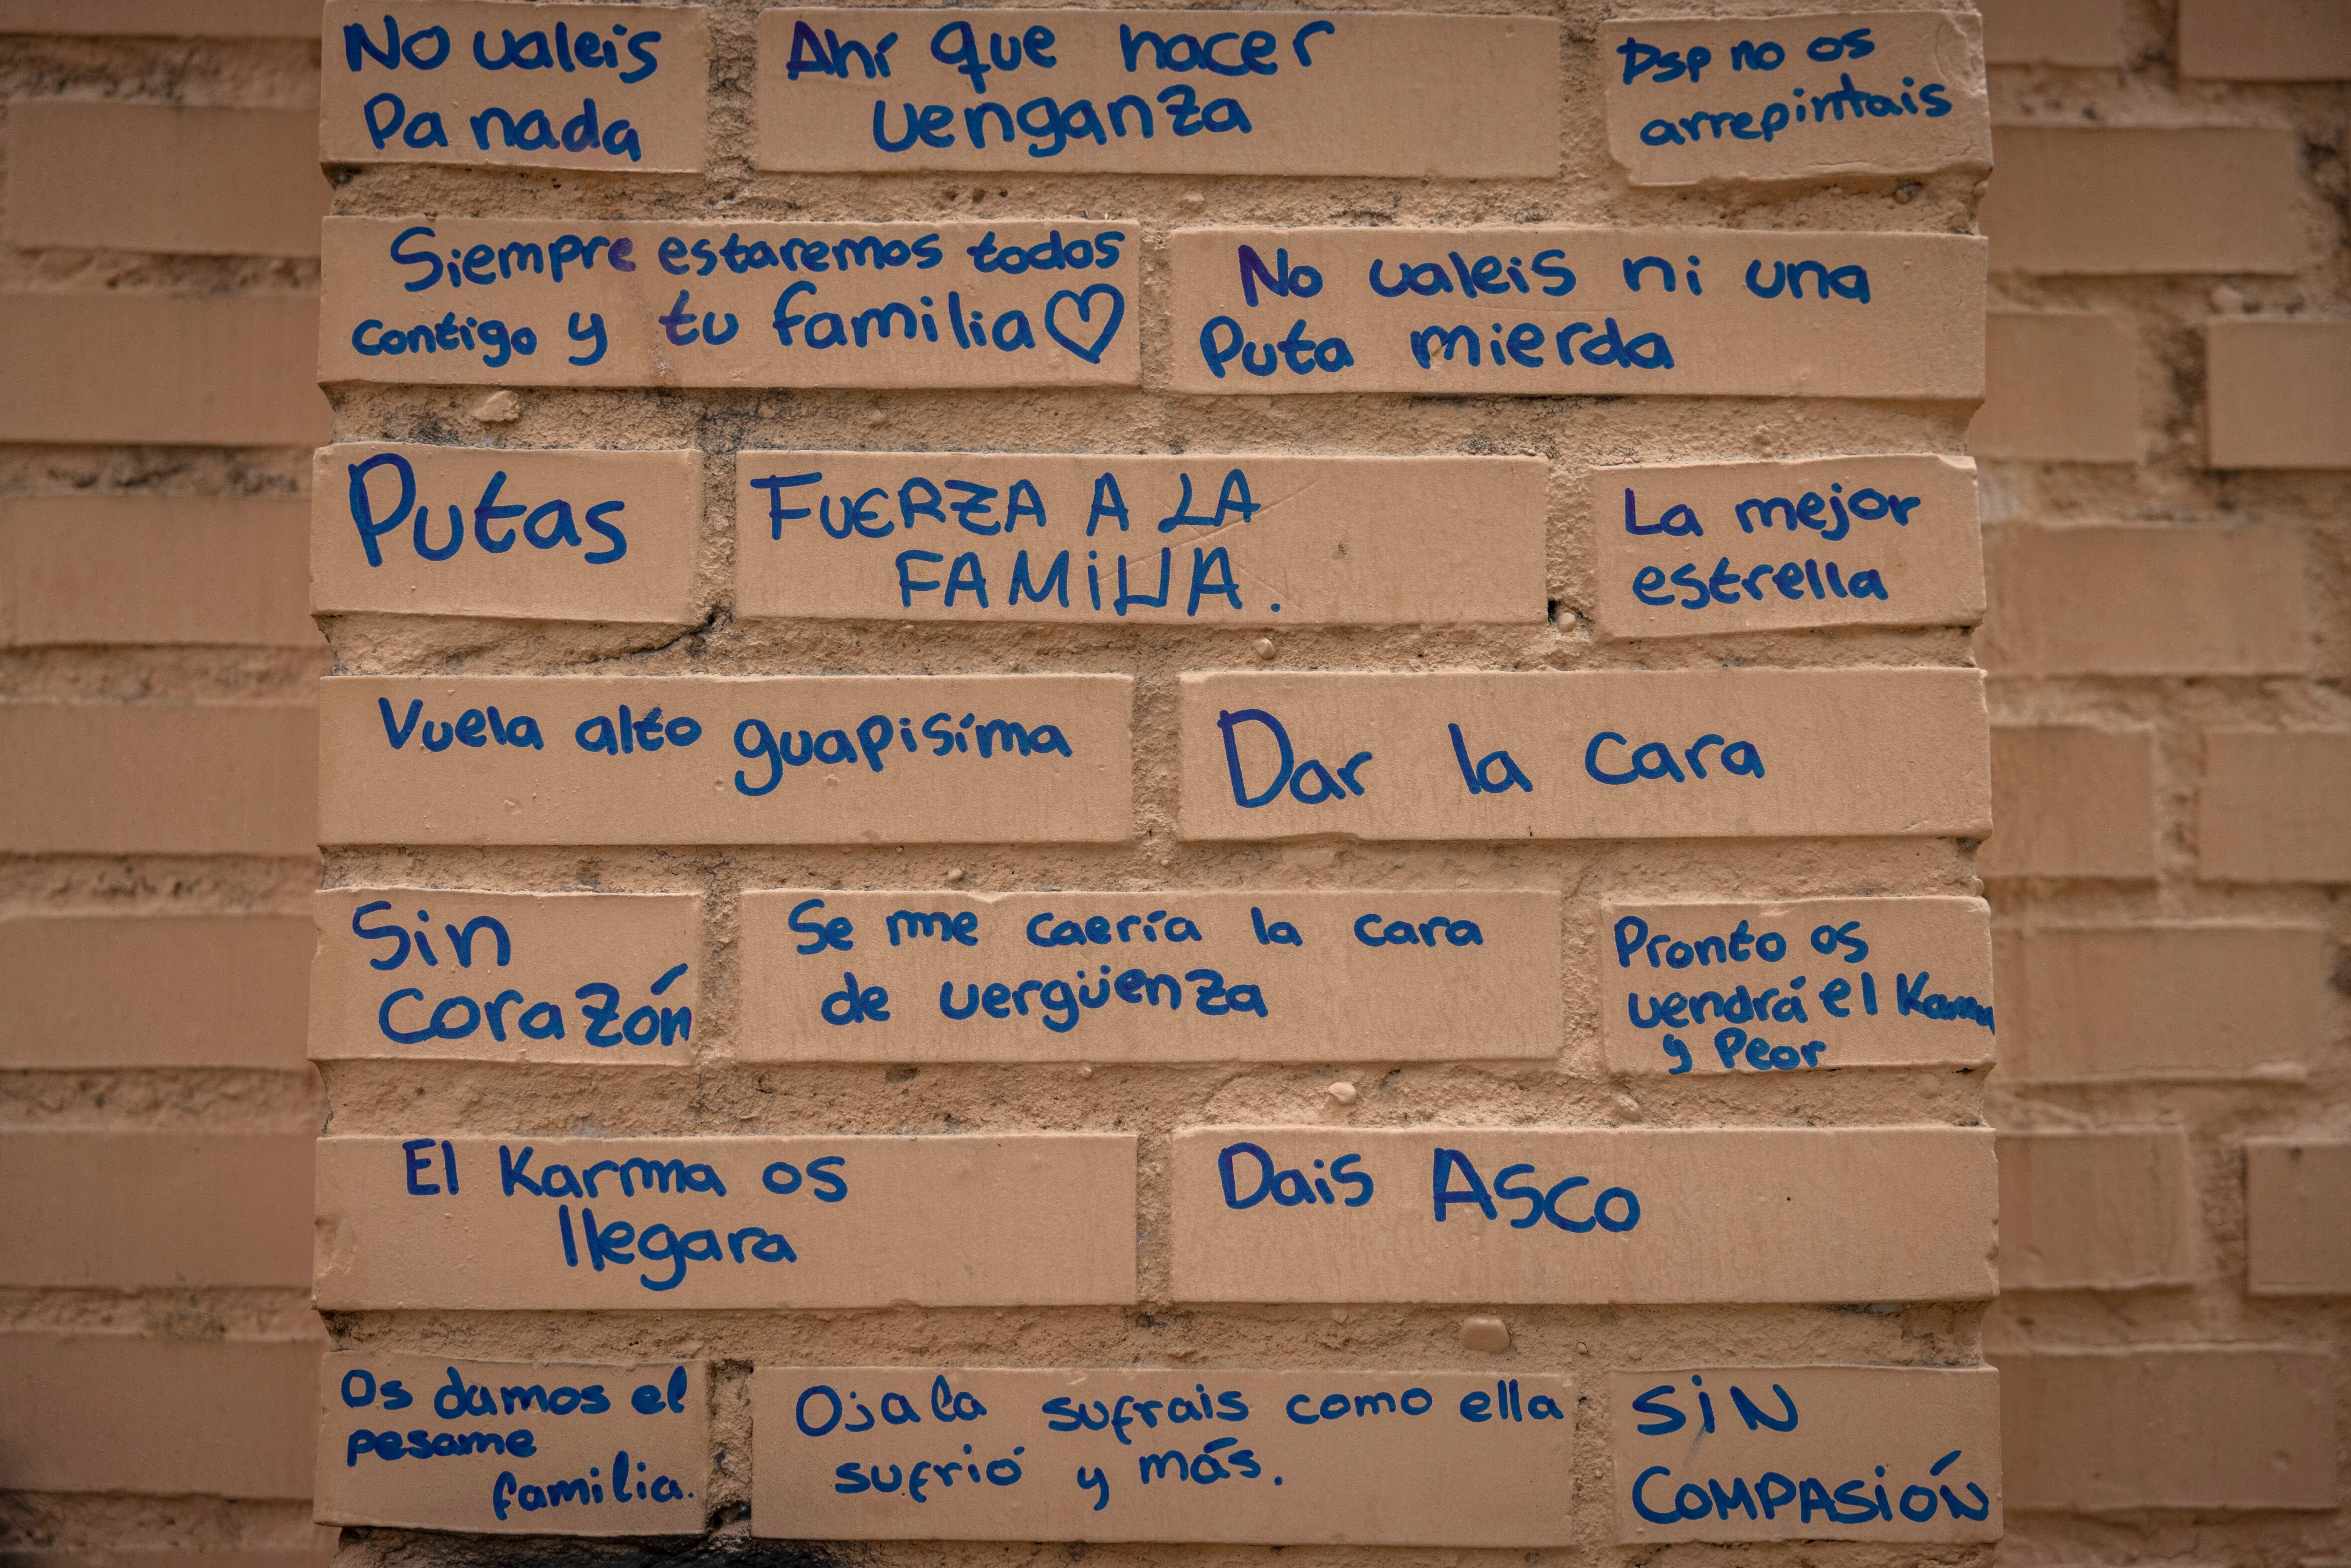 No valeis
Pa nada
Ahí que hacer
venganza
Dsp no os
arrepintais
Siempre estaremos todos
contigo y tu familia♡
No valeis ni una
Puta mierda
Putas
FUERZA A LA
FAMiLIA.
La mejor
estrella
Vuela alto guapisíma
Dar la cara
Sin
corazón
Se me caería la cara
de vergüenza
Pronto os
vendrá el Karma
y Peor
El Karma os
llegara
Dais Asco
Os damos el
pesame
familia.
Ojala sufrais como ella
sufrió y más.
SiN
COMPASióN